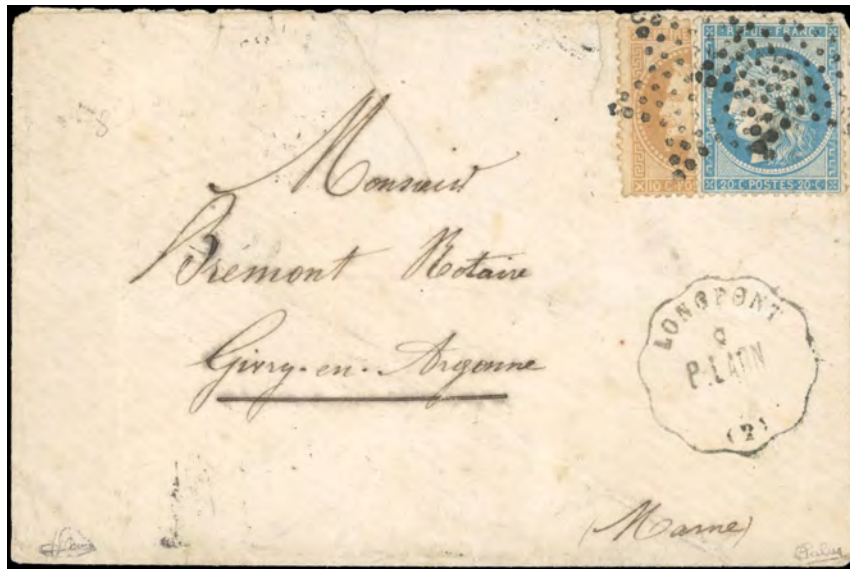 REPUB. FRANC.
10 C. PO
20 C POSTES 20 C
Monsieur
Brémont Notaire
Givry-en-Argonne
(Marne)
LONGPONT
P. LAON
(2)